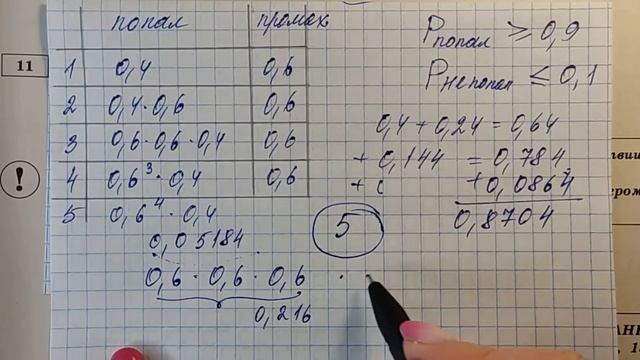 попал промах
11
1 0,4 0,6
2 0,4·0,6 0,6
3 0,6·0,6·0,4 0,6
4 0,6³·0,4 0,6
5 0,6⁴·0,4
0,05184
0,6 · 0,6 · 0,6 ·
0,216
5
Pпопал ≥ 0,9
Pнепопал ≤ 0,1
0,4 + 0,24 = 0,64
+ 0,144 = 0,784
+ 0,0864
0,8704
!